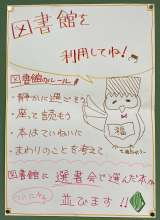 図書館を
利用してね!
図書館のルール
・静かに過ごそう
・座って読もう
・本はていねいに
・まわりのことを考えて
図書館に選書会で選んだ本が
並びます!!